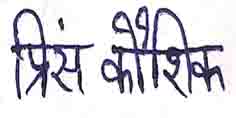 प्रिंस कौशिक